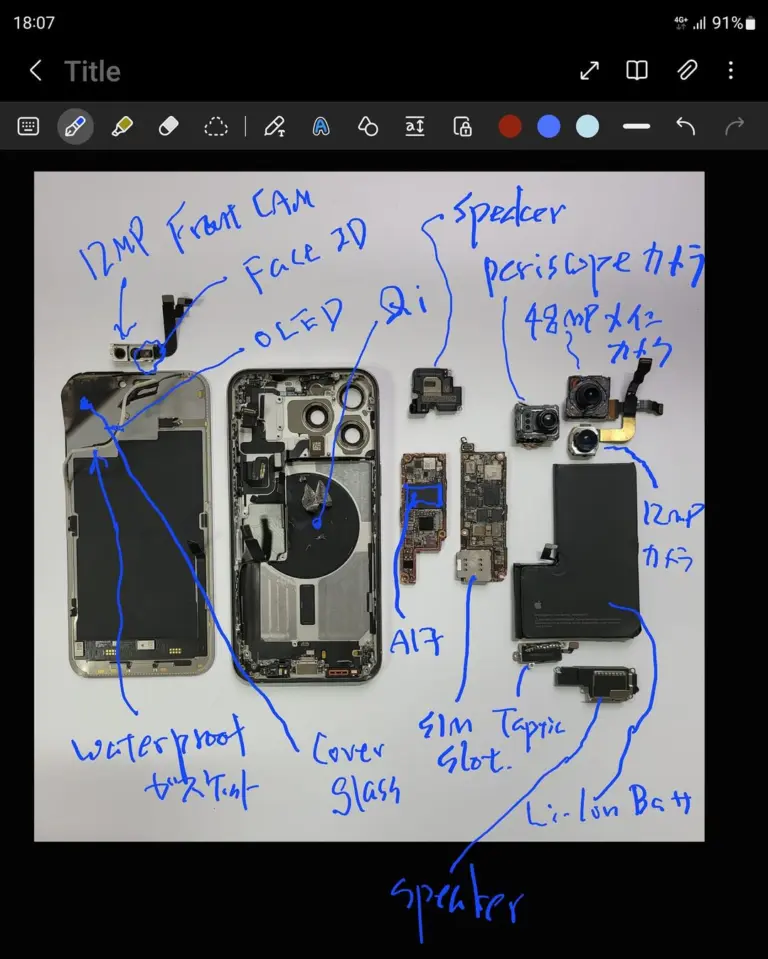 18:07
4G+ 91%
Title
12MP Front CAM
Face ID
OLED
Qi
Speaker
periscope カメラ
48MP メイン
カメラ
12MP
カメラ
A17
SIM
Slot.
Taptic
Waterproof
ガスケット
Cover
glass
Li-Ion Batt
Speaker